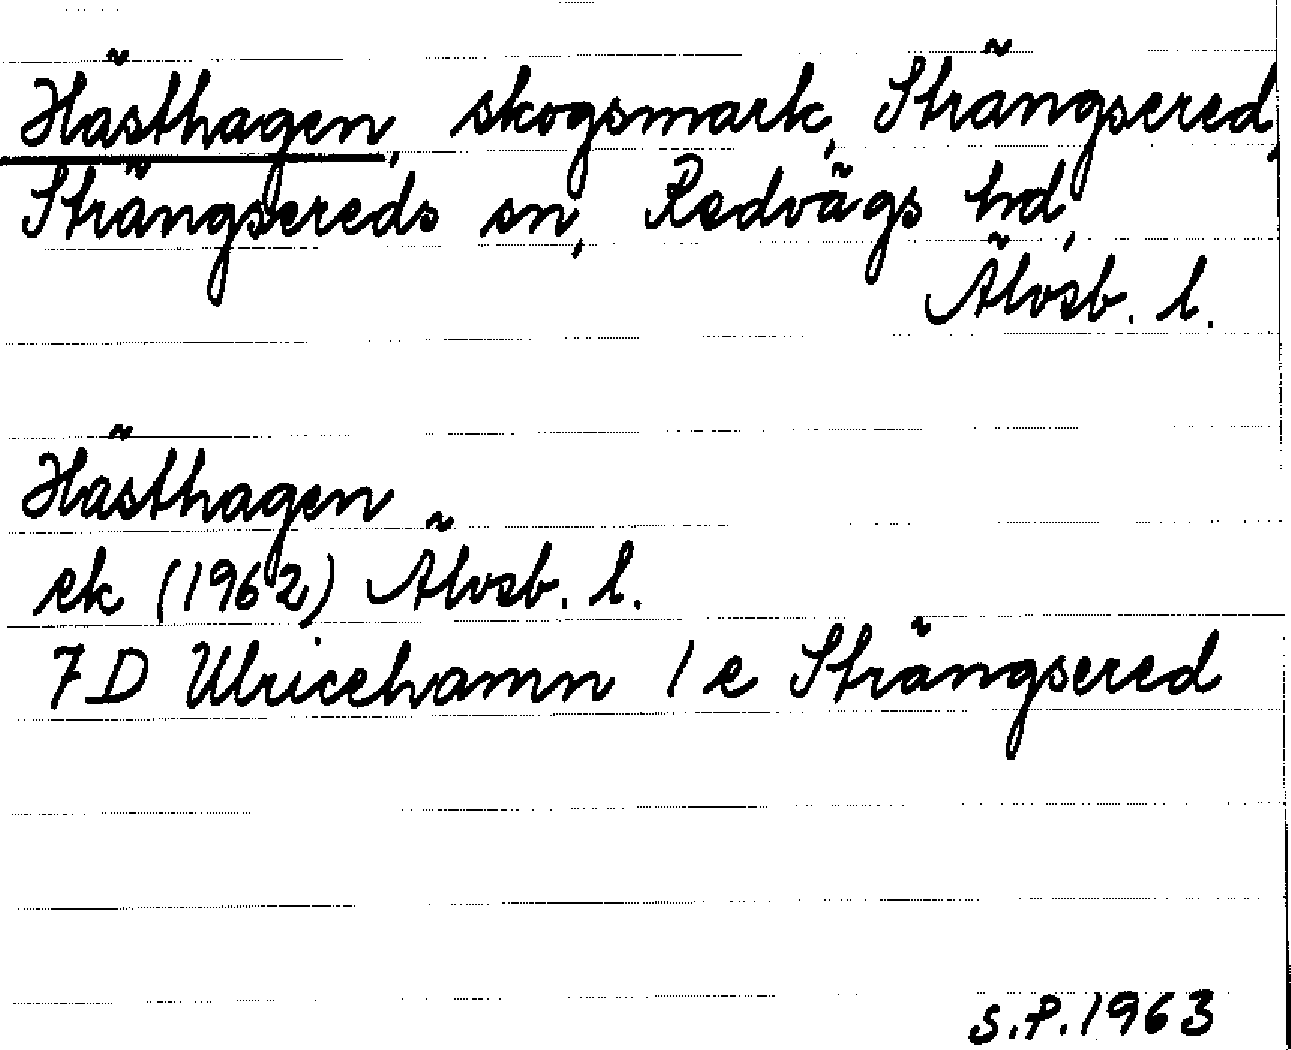 Hästhagen, skogsmark, Strängsered,
Strängsereds sn, Redvägs hd,
Älvsb. l.
Hästhagen
ek (1962) Älvsb. l.
7D Ulricehamn 1 e Strängsered
S.P. 1963